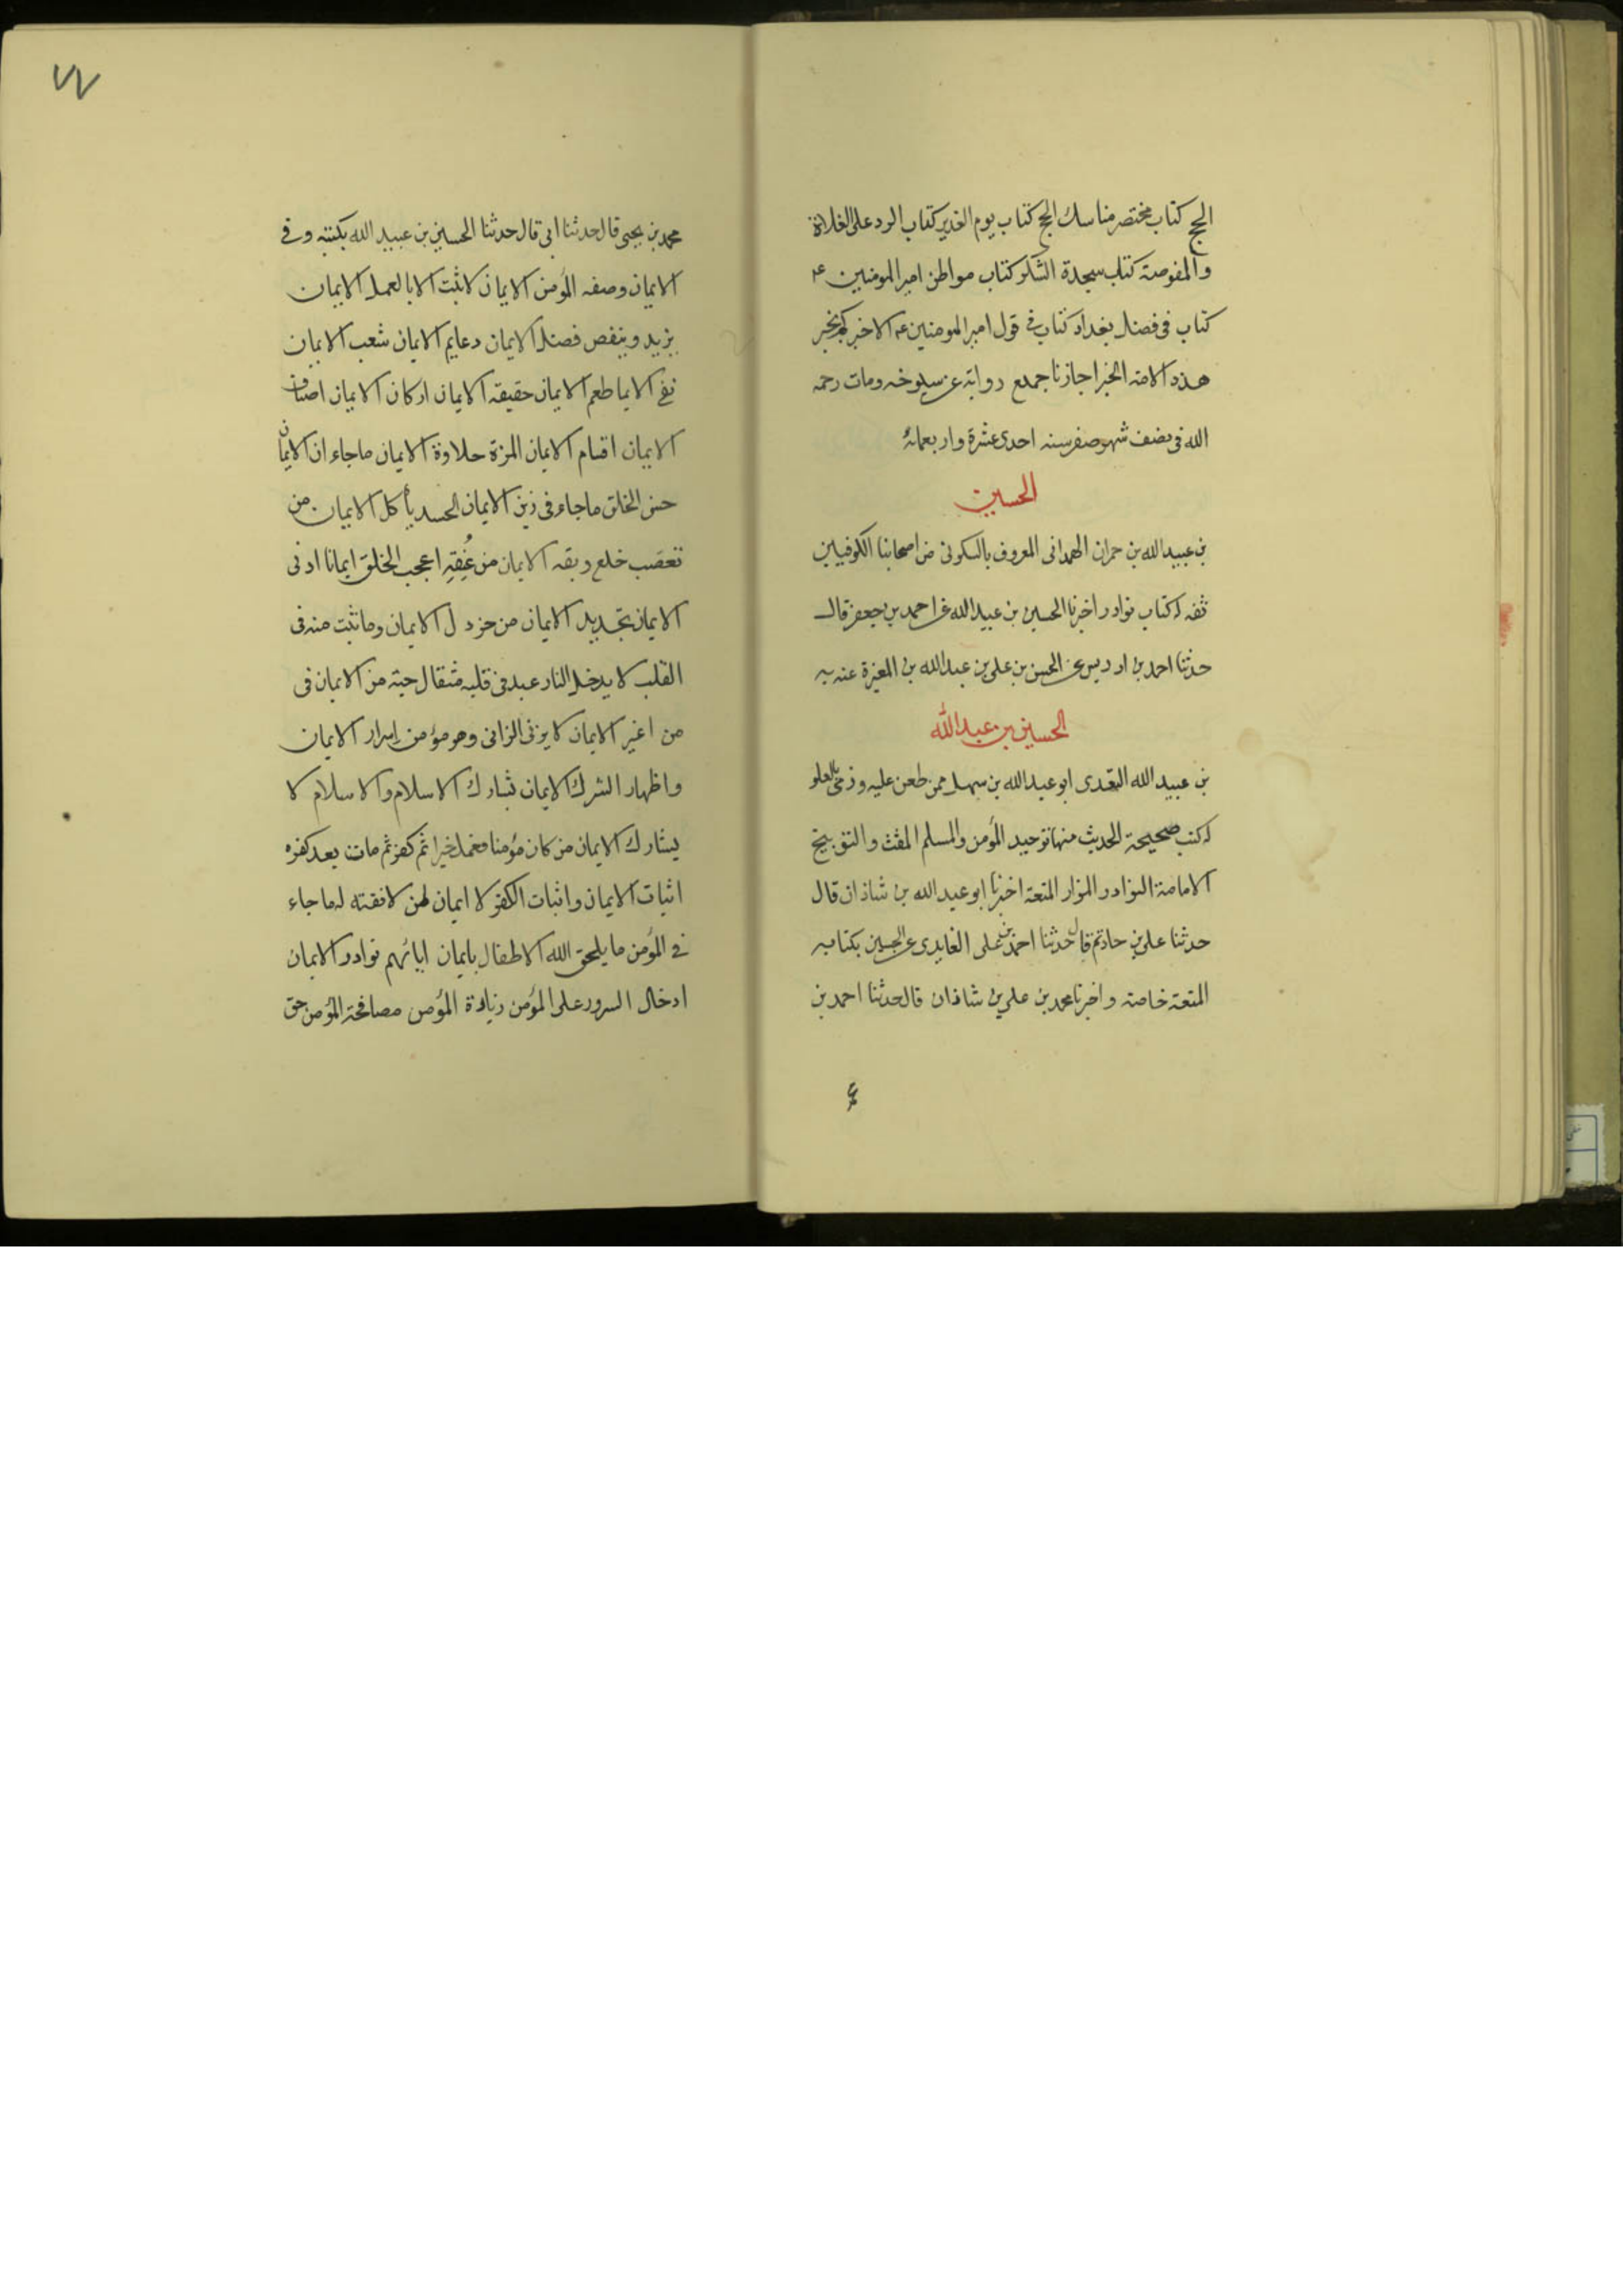 الحج كتاب مختصر مناسك الحج كتاب يوم الغدير كتاب الرد على الغلاة
والمفوضة كتاب سجدة الشكر كتاب مواطن امير المومنين عم
كتاب فى فضل بغداد كتاب فى قول امير المومنين عم الا اخبركم بخير
هذه الامة الخبر اجازنا جميع رواياته عن سيوخه ومات رحمه
الله فى نصف شهر صفر سنه احدى عشرة واربعمائة
الحسين
بن عبيد الله بن حمران الهمدانى المعروف بالسكونى من اصحابنا الكوفيين
ثقه له كتاب نوادر اخبرنا الحسين بن عبيد الله عن احمد بن جعفر قال
حدثنا احمد بن ادريس عن الحسن بن على بن عبد الله بن المغيرة عنه به
الحسين بن عبد الله
بن عبيد الله السعدى ابو عبد الله بن سهل ممن طعن عليه ورمى بالغلو
له كتب صحيحة الحديث منها توحيد المؤمن والمسلم المقت والتوبيخ
الامامة النوادر المزار المتعة اخبرنا ابو عبد الله بن شاذان قال
حدثنا على بن حاتم قال حدثنا احمد بن على الفايدى عن الحسين بكتابه
المتعة خاصة واخبرنا محمد بن على بن شاذان قال حدثنا احمد بن
٧٧
محمد بن يحيى قال حدثنا ابى قال حدثنا الحسين بن عبيد الله بكتبه وفى
الايمان وصفه المؤمن الايمان لا يثبت الا بالعمل الايمان
يزيد وينقص فضل الايمان دعايم الايمان شعب الايمان
نفى الايما طعم الايمان حقيقه الايمان اركان الايمان اصناف
الايمان اقسام الايمان المزة حلاوة الايمان ما جاء ان الايمان
حسن الخلق ما جاء فى زين الايمان الحسد يأكل الايمان من
تعصب خلع ربقه الايمان من عنقه اعجب الخلق ايمانا ادنى
الايمان تجديد الايمان من خردل الايمان وما تثبت منه فى
القلب لا يدخل النار عبد فى قلبه مثقال حبة من الايمان فى
من اغير الايمان لا يزنى الزانى وهو مؤمن اسرار الايمان
واظهار الشرك الايمان تشارك الاسلام والاسلام لا
يشارك الايمان من كان مؤمنا فعمل خيرا ثم كفر ثم مات بعد كفره
اثبات الايمان واثبات الكفر لا ايمان لمن لا تقته له ما جاء
فى المؤمن ما يلحق الله الاطفال بايمان ابائهم نوادر الايمان
ادخال السرور على المؤمن زيادة المؤمن مصافحة المؤمن حق